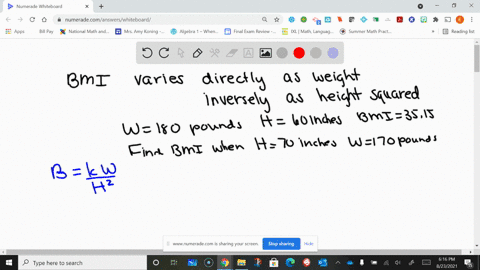 Numerade Whiteboard
numerade.com/answers/whiteboard/
Apps
Bill Pay
National Math and...
Mrs. Amy Koning -...
Algebra 1 - Wheen...
Final Exam Review -...
IXL | Math, Languag...
Summer Math Practi...
Reading list
BMI varies directly as weight
inversely as height squared
W=180 pounds H=60 inches BMI=35.15
Find BMI when H=70 inches W=170 pounds
B = kW
H²
www.numerade.com is sharing your screen.
Stop sharing
Hide
Type here to search
6:16 PM
8/23/2021